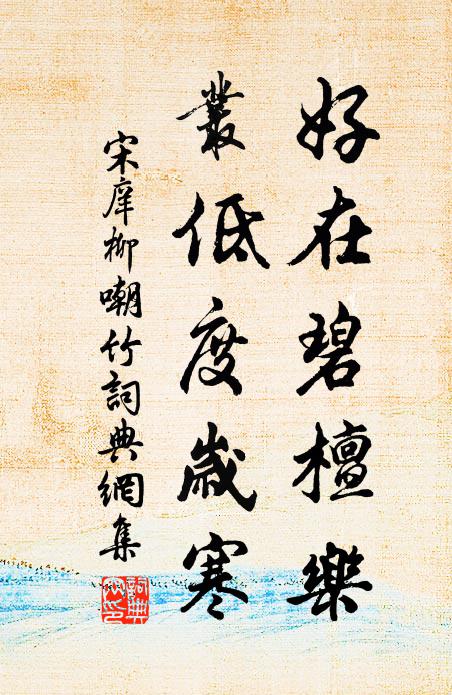 好在碧檀樂
叢低度歲寒
宋庠柳嘲竹詞典網集